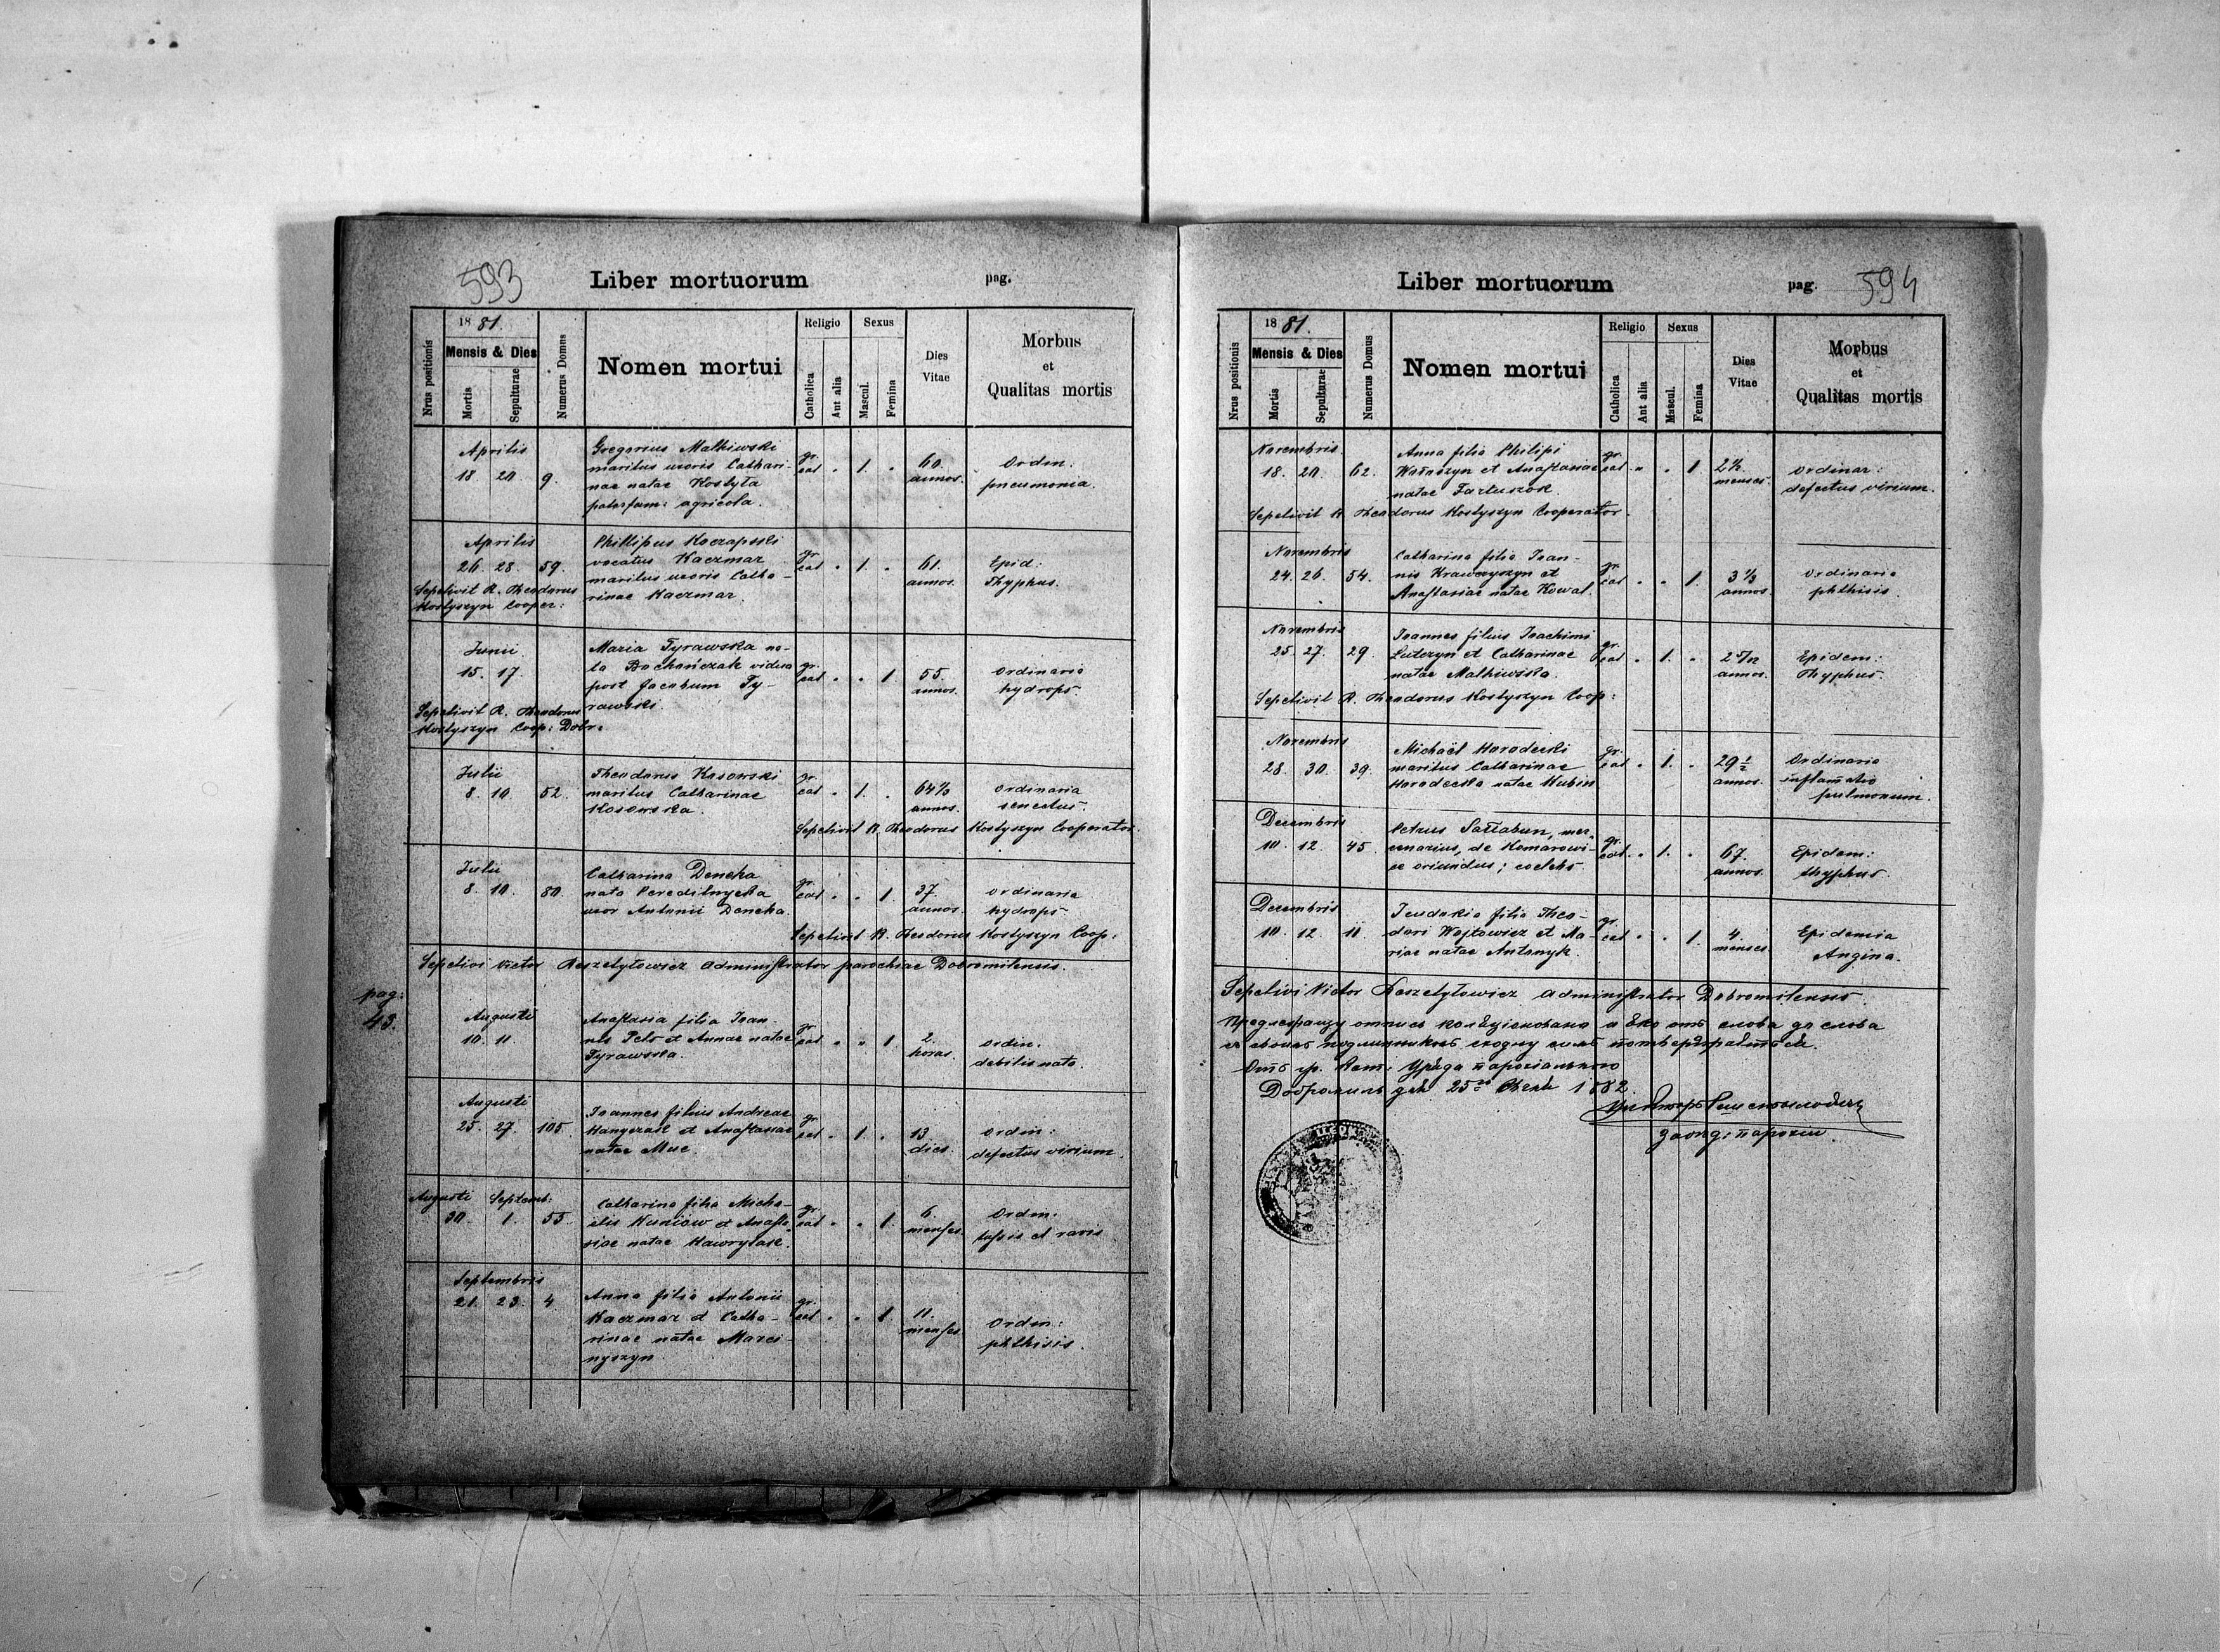 593
Liber mortuorum pag.
Nrus positionis
1881.
Mensis & Dies
Mortis
Sepulturae
Numerus Domus
Nomen mortui
Religio
Catholica
Aut alia
Sexus
Mascul.
Femina
Dies
Vitae
Morbus
et
Qualitas mortis
Aprilis
18. 20. 9.
Gregorius Malhiwski
maritus uxoris Cathari-
nae natae Kostyła
paterfam: agricola.
gr.
cat " 1. "
60.
annos.
Ordin:
pneumonia.
Aprilis
26. 28. 59.
Sepelivit R. Theodorus
Kostyszyn Cooper:
Phillipus Koczapski
vocatus Kaczmar
maritus uxoris Catha-
rinae Kaczmar.
gr.
cat " 1. "
61.
annos.
Epid:
Thyphus.
Junii
15. 17.
Sepelivit R. Theodorus
Kostyszyn Coop: Dobr:
Maria Tyrawska na-
ta Bochańczak vidua
post Jacobum Ty-
rawski.
gr.
cat " " 1.
55.
annos.
Ordinaria
hydrops
Julii
8. 10. 52.
Theodorus Kosowski
maritus Catharinae
Kosowska.
gr.
cat " 1. "
64½
annos.
Ordinaria
senectus.
Sepelivit R. Theodorus Kostyszyn Cooperator.
Julii
8. 10. 80.
Catharina Deneka
nata Peredilnycka
uxor Antonii Deneka.
gr.
cat " " 1.
37.
annos.
Ordinaria
hydrops
Sepelivit R. Theodorus Kostyszyn Coop:
Sepelivi Victor Reszetyłowicz Administrator parochiae Dobromilensis.
pag:
43.
Augusti
10. 11.
Anastasia filia Joan-
nis Pelo et Annae natae
Tyrawska.
gr.
cat " " 1
2.
horas.
Ordin:
debilis nata.
Augusti
25. 27. 105.
Joannes filius Andreae
Hanyczak et Anastasiae
natae Muc.
gr.
cat " 1. "
13
dies.
Ordin:
defectus virium.
Augusti Septemb:
30. 1. 55.
Catharina filia Micha-
elis Huniow et Anasta-
siae natae Hawrylak.
gr.
cat " " 1.
6.
menses.
Ordin:
tussis et ravis
Septembris
21. 23. 4.
Anna filia Antonii
Kaczmar et Catha-
rinae natae Marci-
nyszyn.
gr.
cat " " 1
11.
menses
Ordin:
phthisis.
Liber mortuorum pag. 594
Nrus positionis
1881.
Mensis & Dies
Mortis
Sepulturae
Numerus Domus
Nomen mortui
Religio
Catholica
Aut alia
Sexus
Mascul.
Femina
Dies
Vitae
Morbus
et
Qualitas mortis
Novembris
18. 20. 62.
Anna filia Philipi
et Anastasiae
natae Fartuszok.
gr.
cat " " 1
2½
menses.
Ordinar:
defectus virium.
Sepelivit R. Theodorus Kostyszyn Cooperator.
Novembris
24. 26. 54.
Catharina filia Joan-
nis Krawczyszyn et
Anastasiae natae Kowal.
gr.
cat " " 1.
3½
annos
Ordinaria
phthisis.
Novembris
25. 27. 29.
Joannes filius Joachimi
Lutczyn et Catharinae
natae Malhiwska.
gr.
cat " 1. "
annos.
Epidem:
Thyphus.
Sepelivit R. Theodorus Kostyszyn Coop:
Novembris
28. 30. 39.
Michaël Horodecki
maritus Catharinae
Horodecka natae Hubin
gr.
cat " 1. "
29½
annos.
Ordinaria
inflamatio
pulmonum.
Decembris
10. 12. 45.
Petrus Sałtabun, mer-
cenarius, de Komarowi-
ce oriundus; coelebs
gr.
cat " 1. "
67.
annos.
Epidem:
thyphus.
Decembris
10. 12. 11.
Jeudokia filia Theo-
dori Wojtowicz et Ma-
riae natae Antonyk.
gr.
cat " " 1.
4.
menses
Epidemia
Angina.
Sepelivi Victor Reszetyłowicz Administrator Dobromilensis.
отпись отъ слова до слова
Отъ гр. кат: Уряда парохіального
Добромиль дня 25 1882.